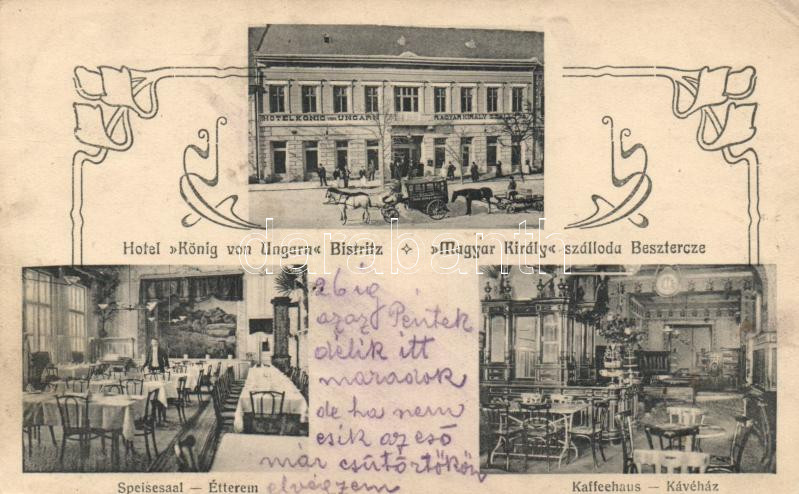 HOTEL KÖNIG VON UNGARN MAGYAR KIRÁLY SZÁLL
Hotel »König von Ungarn« Bistritz ✧ »Magyar Király« szálloda Besztercze
26 ig
azaz Pentek
délik itt
maradok
de ha nem
esik az eső
már csütörtökön
elvégzem
Speisesaal — Étterem
Kaffeehaus — Kávéház
darabanth